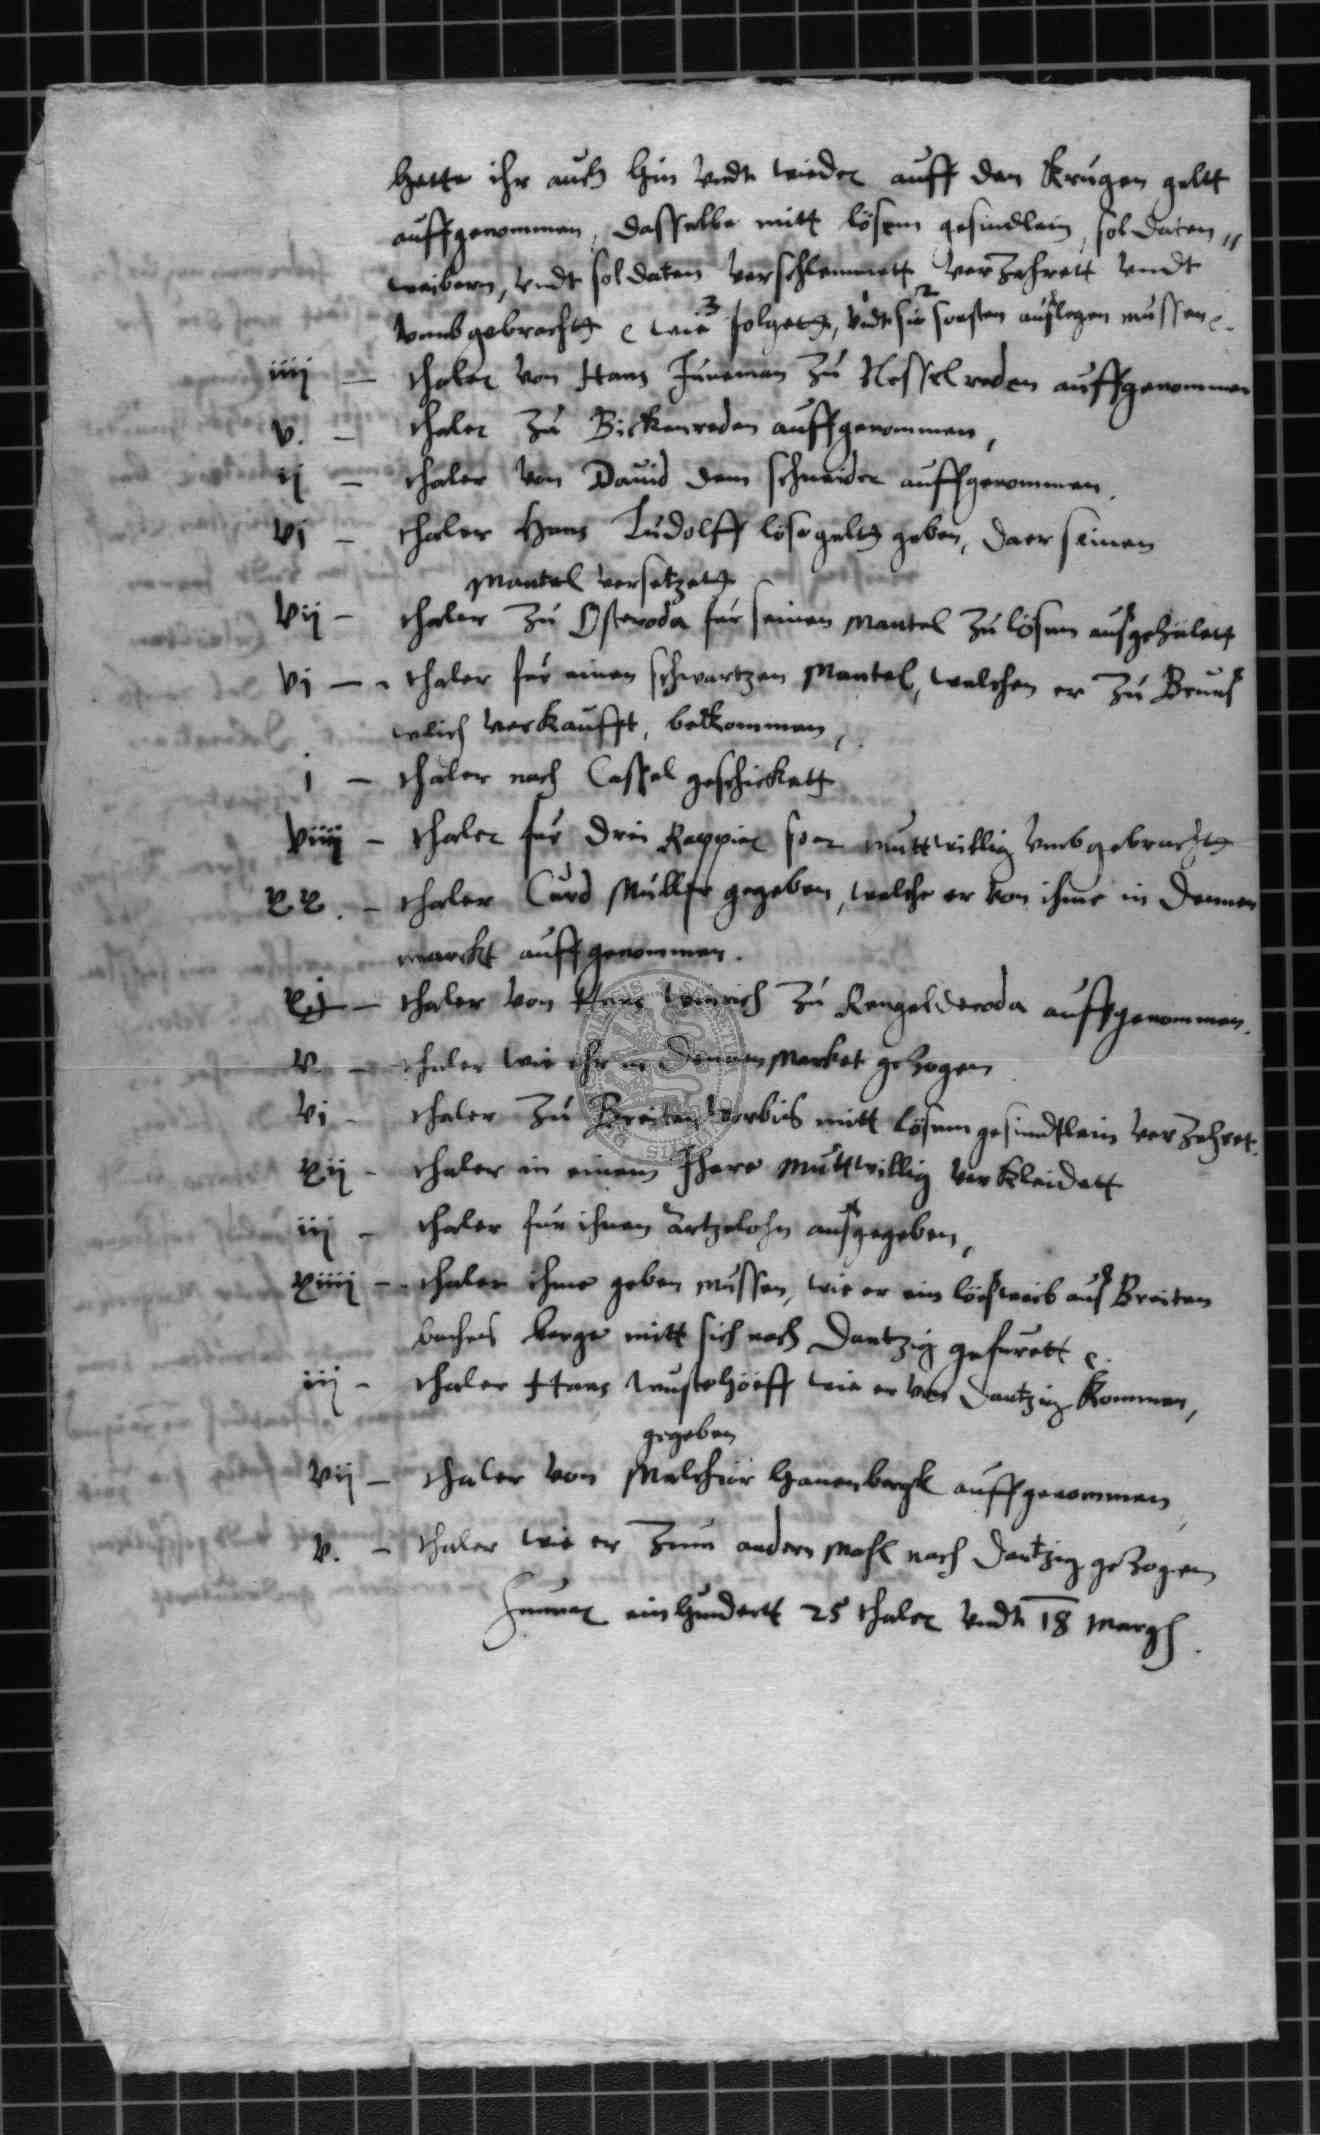 hette ihr auch hin vndt wieder auff den Krugen geltt
auffgenommen, dasselbe mitt lösem gesindlein, soldaten,,
weibern, vndt soldaten verschlemmett verzehrett vndt
vmbgebracht wie 3 folgett, vndt sie 2 sonsten außlegen mussen
iiij – thaler von Hans Juneman zu Nesselreden auffgenommen
v. – thaler zu Bickenreden auffgenommen,
ij – thaler von Dauid dem schneider auffgenommen.
vj – thaler Hans Ludolff lösegeltt geben, da er seinen
Mantel versetzett
vij – thaler zu Osteroda fur seinen Mantel zu lösen außgezalett
vj – thaler fur einen schwartzen Mantel, welchen er zu Braunß
wich verkaufft, bekommen,
j – thaler nach Cassel geschickett
viiij – thaler fur drei Rappier so er muttwillig vmbgebracht
xx. – thaler Curd Muller gegeben, welche er von ihme in Dennen
marckt auffgenommen.
xj – thaler von Hans Heinrich zu Rengelderoda auffgenommen.
v. – thaler wie ehr in Dennenmarket gezogen
vj – thaler zu Breiten Worbis mitt lösem gesindtlein verzehret.
xij – thaler in einem Jhare muttwillig verkleidett
iij – thaler fur ihnen artzelohn außgegeben,
xiiij – thaler ihme geben mussen, wie er ein lößweib auß Breiten
baches berge mitt sich nach Dantzig gefurett
iij – thaler Hans Wustehöeff wie er von Dantzig kommen,
gegeben
vij – thaler von Melchior Hanenbergk auffgenommen
v. – thaler wie er zum andern Mahl nach Dantzig gezogen
Summa einhundertt 25 thaler vndt 18 Margl